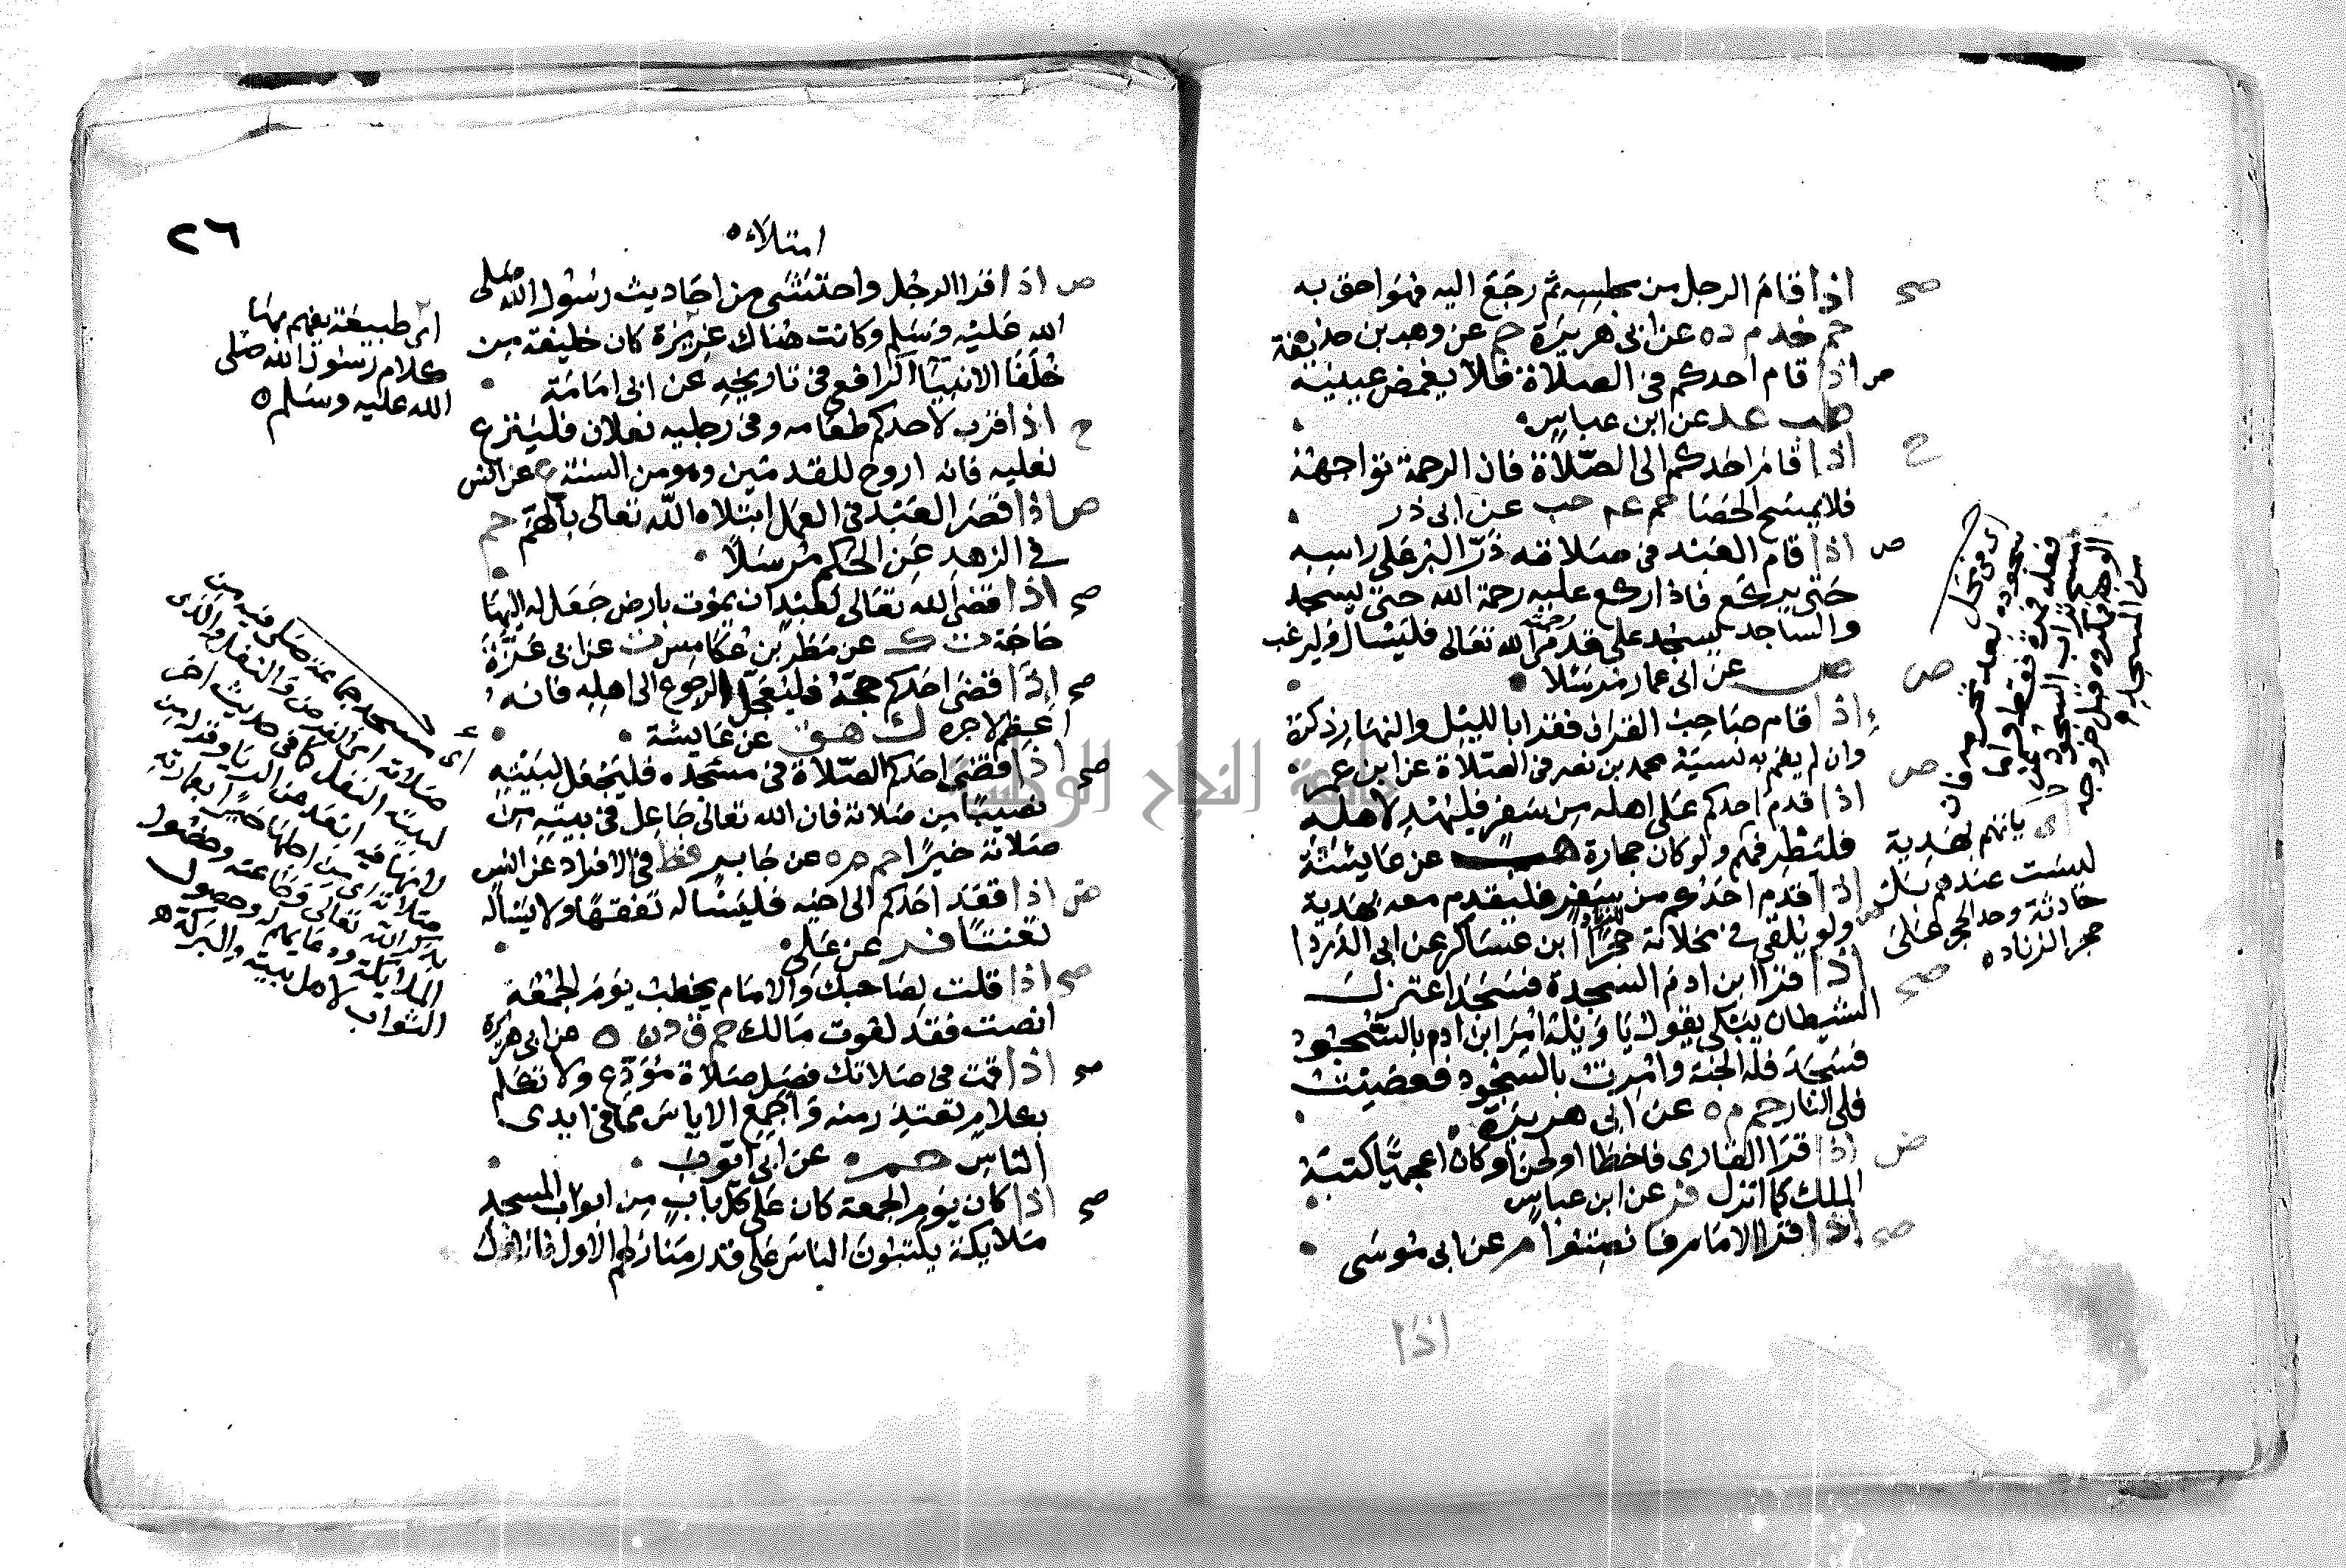 صح اذا قام الرجل من مجلسه ثم رجع اليه فهو احق به
حم خد م د ه عن ابى هريرة حم عن وهب بن حذيفة
ض اذا قام احدكم فى الصلاة فلا يغمض عينيه
طب عد عن ابن عباس
ح اذا قام احدكم الى الصلاة فان الرحمة تواجهه
فلا يمسح الحصا حم عم حب عن ابى ذر
ض اذا قام العبد فى صلاته ذر البر على راسه
حتى يركع فاذا ركع عليه رحمة الله حتى يسجد
والساجد يسجد على قدمى الله تعالى فليسال وليرغب
ص عن ابى عمار مرسلا
ض اذا قام صاحب القران فقرا بالليل والنهار ذكره
وان لم يقم به نسيه محمد بن نصر فى الصلاة عن ابن عمر
ض اذا قدم احدكم على اهله من سفر فليهد لاهله
فليطرفهم ولو كان حجارة هب عن عايشة
ض اذا قدم احدكم من سفر فليقدم معه بهدية
ولو يلقى فى مخلاته حجرا ابن عساكر عن ابى الدردا
صح اذا قرا ابن ادم السجدة فسجد اعتزل
الشيطان يبكى يقول يا ويله امر ابن ادم بالسجود
فسجد فله الجنة وامرت بالسجود فعصيت
فلى النار حم م ه عن ابى هريرة
ض اذا قرا القارى فاخطا او لحن او كان اعجميا كتبه
الملك كما انزل فر عن ابن عباس
صح اذا قرا الامام فانصتوا م عن ابى موسى
اذا
اى فى محل
سجوده
اى ياتيهم بهدية
ليست عندهم بتلك
حجر الزناد ه
٢٦
امتلاء ه
ض اذا قرا الرجل واحتشى من احاديث رسول الله صلى
الله عليه وسلم وكانت هناك غريزة كان خليفة من
خلفا الانبيا الرافعى فى تاريخه عن ابى امامة
ح اذا قرب لاحدكم طعامه وفى رجليه نعلان فلينزع
نعليه فانه اروح للقدمين وهو من السنة ع عن انس
ض اذا قصر العبد فى العمل ابتلاه الله تعالى بالهم حم
فى الزهد عن الحكم مرسلا
صح اذا قضى الله تعالى لعبد ان يموت بارض جعل له اليها
حاجة ت ك عن مطر بن عكامس ت عن ابى عزة
صح اذا قضى احدكم حجه فليعجل الرجوع الى اهله فانه
اعظم لاجره ك هق عن عايشة
صح اذا قضى احدكم الصلاة فى مسجده فليجعل لبيته
نصيبا من صلاته فان الله تعالى جاعل فى بيته من
صلاته خيرا حم م ه عن جابر قط فى الافراد عن انس
ض اذا قعد احدكم الى اخيه فليساله تفقها ولا يساله
تعنتا فر عن على
صح اذا قلت لصاحبك والامام يخطب يوم الجمعة
انصت فقد لغوت مالك حم ق د ن ه عن ابى هريرة
صح اذا قمت فى صلاتك فصل صلاة مودع ولا تكلم
بكلام تعتذر منه واجمع الاياس مما فى ايدى
الناس حم ه عن ابى ايوب
صح اذا كان يوم الجمعة كان على كل باب من ابواب المسجد
ملايكة يكتبون الناس على قدر منازلهم الاول فالاول
اى طبيعة يفهم بها
كلام رسول الله صلى
الله عليه وسلم ه
اى مسجد جماعة صلى فيه من
صلاته اى الفرض والنفل والذى
لبيته النفل كما فى حديث اخر
الملايكة ودعايهم له وحصول
الثواب لاهل بيته والبركة ه
جامعة النجاح الوطنية